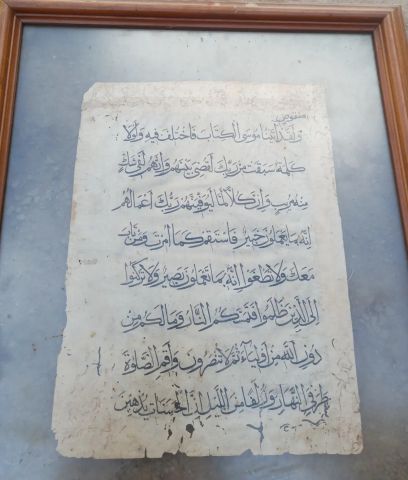 منقوص
ولقد اتينا موسى الكتاب فاختلف فيه ولولا
كلمة سبقت من ربك لقضى بينهم وانهم لفى شك
منه مريب وان كلا لما ليوفينهم ربك اعمالهم
انه بما يعملون خبير فاستقم كما امرت ومن تاب
معك ولا تطغوا انه بما تعملون بصير ولا تركنوا
الى الذين ظلموا فتمسكم النار وما لكم من
دون الله من اولياء ثم لا تنصرون واقم الصلوة
طرفى النهار وزلفا من الليل ان الحسنات يذهبن